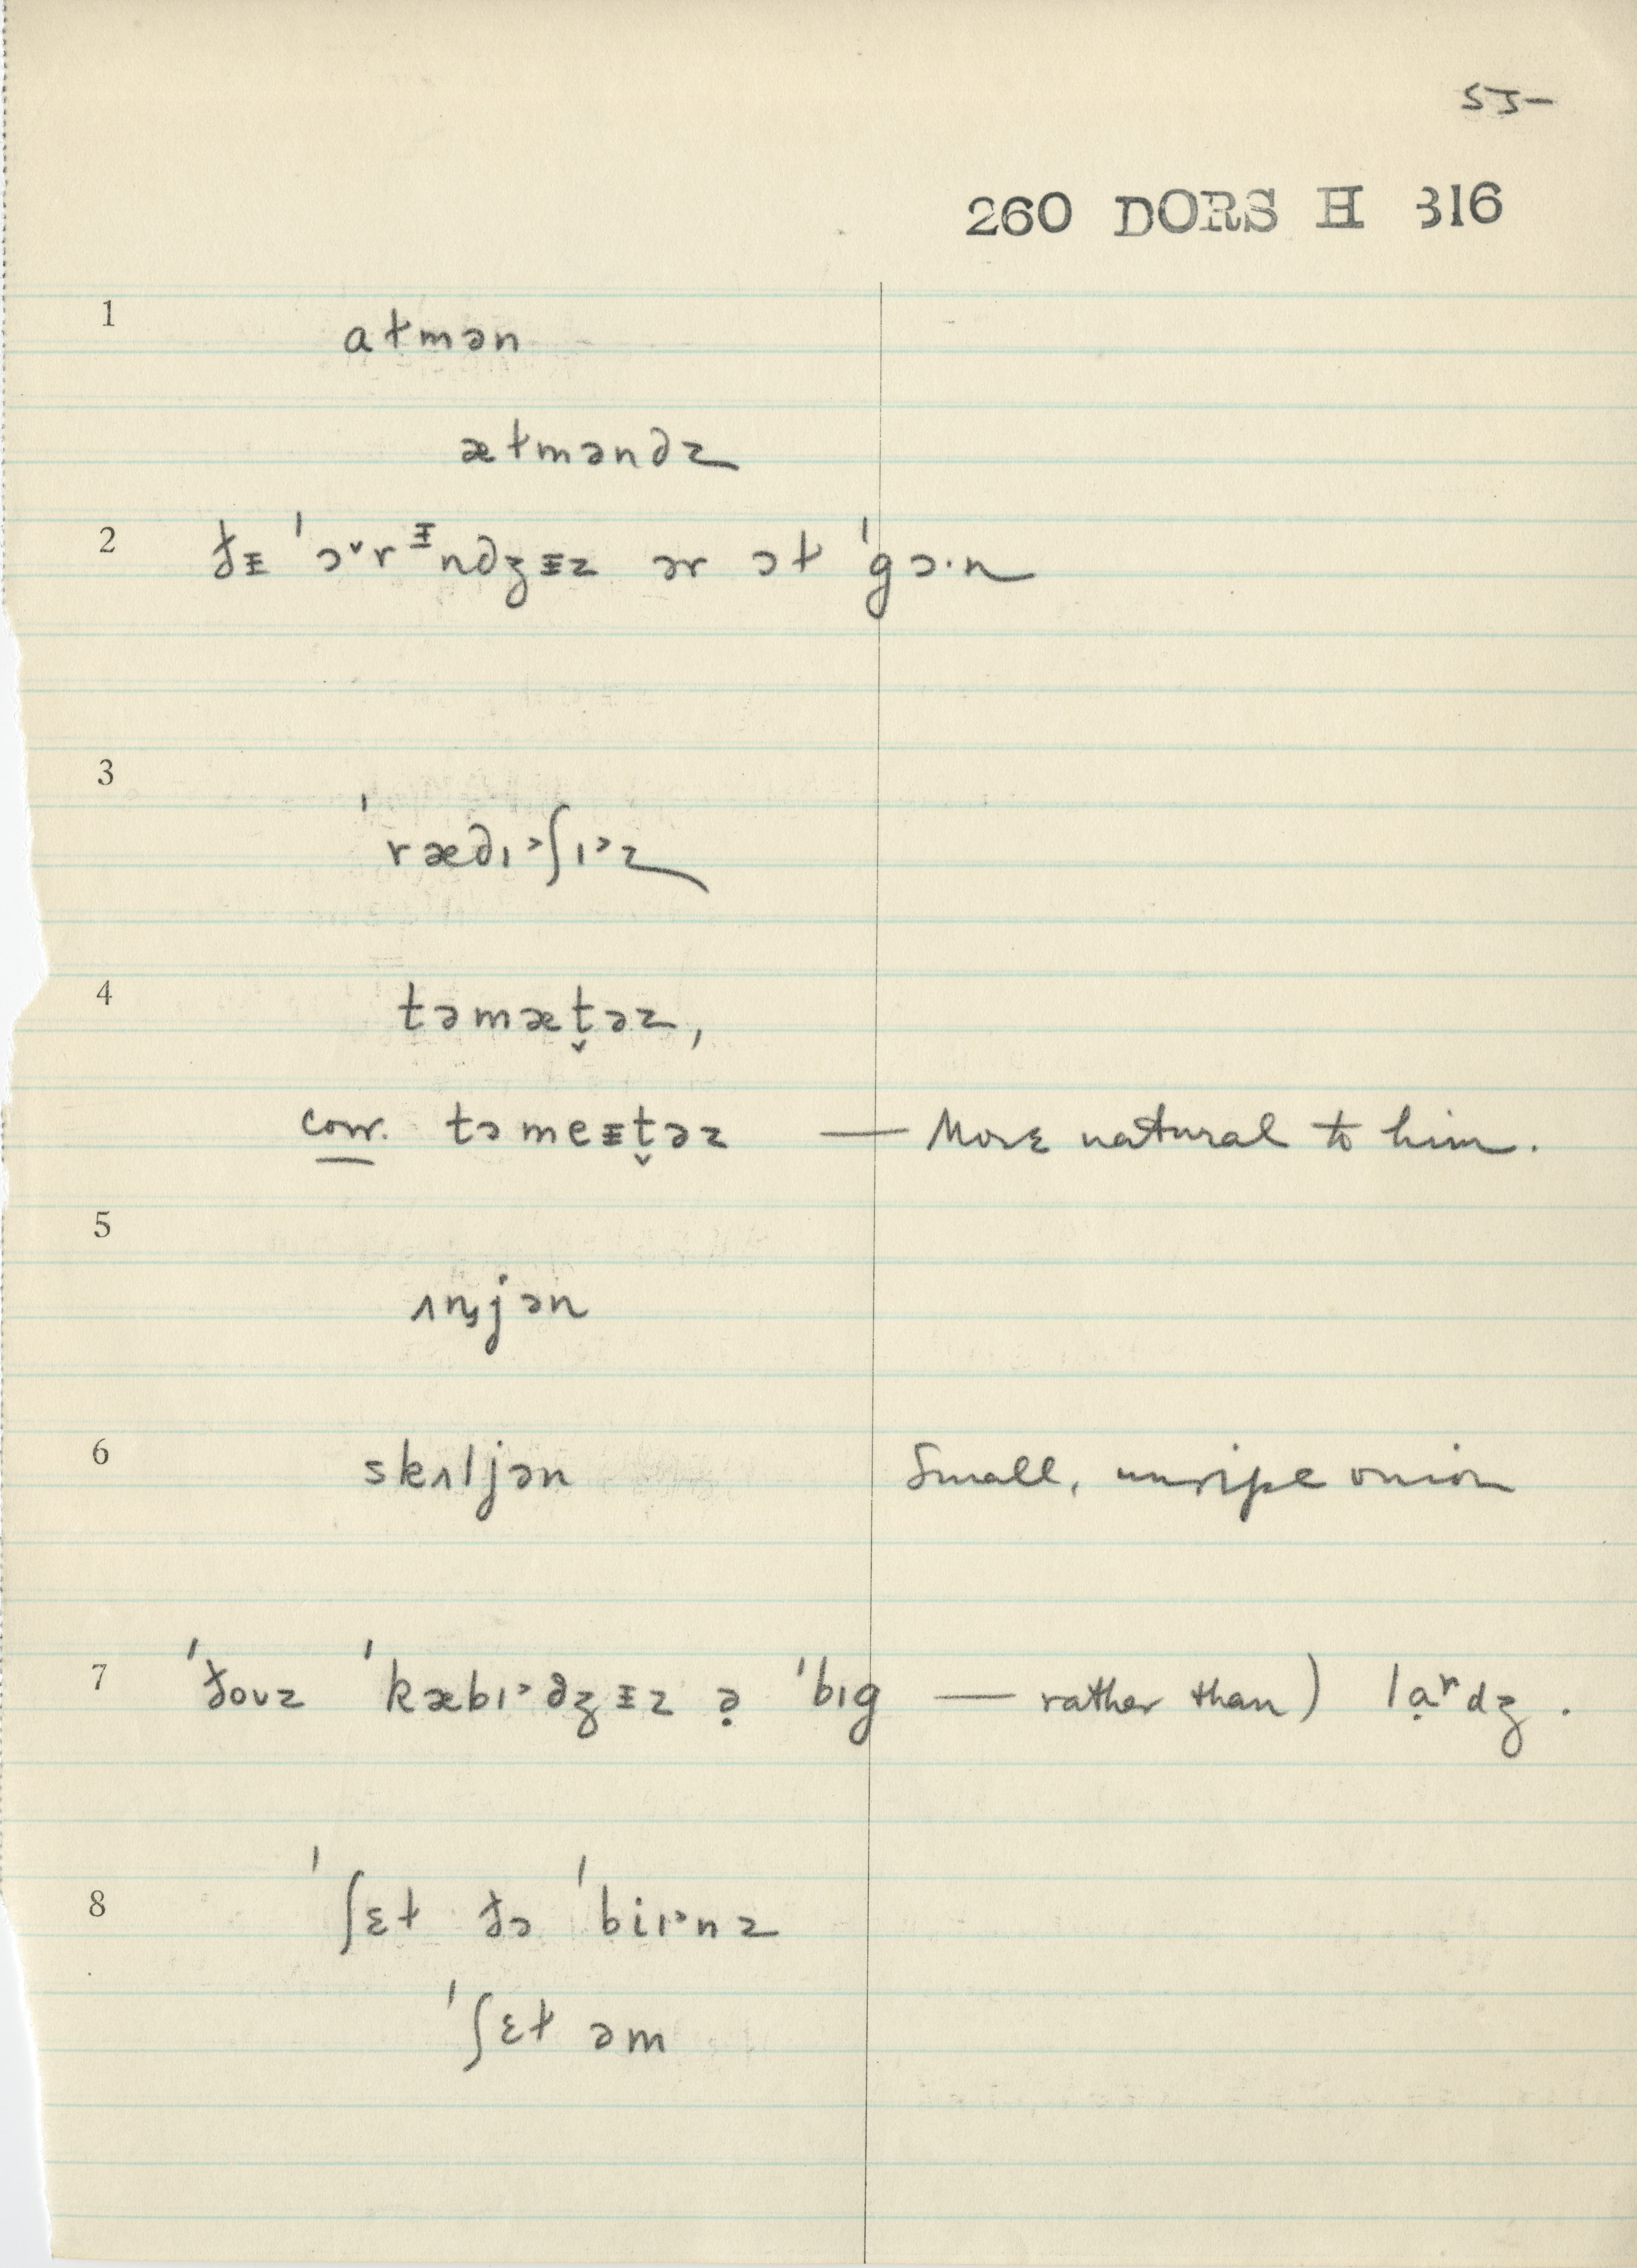 55-
260 DORS H 316
1 aɫmən
æɫməndz
2 ðᵻ ˈɔ˅rᵻndʒᵻz ər ɔɫ ˈgɔ·n
3 ˈrædɪ˒ʃɪ˒z
4 təmæt̬əz,
corr. təmeᵻt̬əz — More natural to him.
5 ʌnjən
6 skʌljən Small, unripe onion
7 ˈðoʊz ˈkæbɪ˒dʒᵻz ə̣ ˈbɪg — rather than) lạʳdʒ.
8 ˈʃɛɫ ðə ˈbiɪ˒nz
ˈʃɛɫ əm